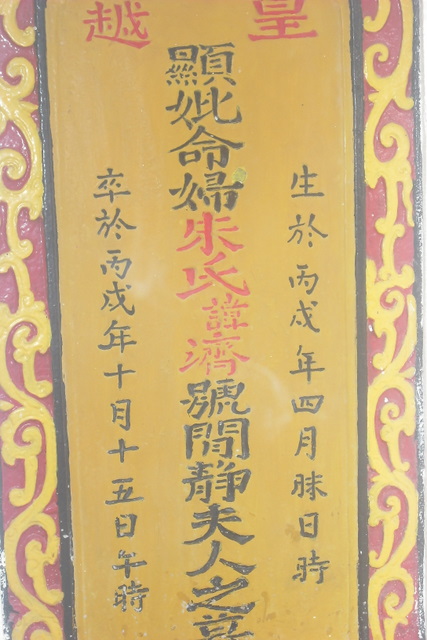 皇越
生於丙戌年四月昧日時
顯妣命婦朱氏諱濟號閒靜夫人之
卒於丙戌年十月十五日午時